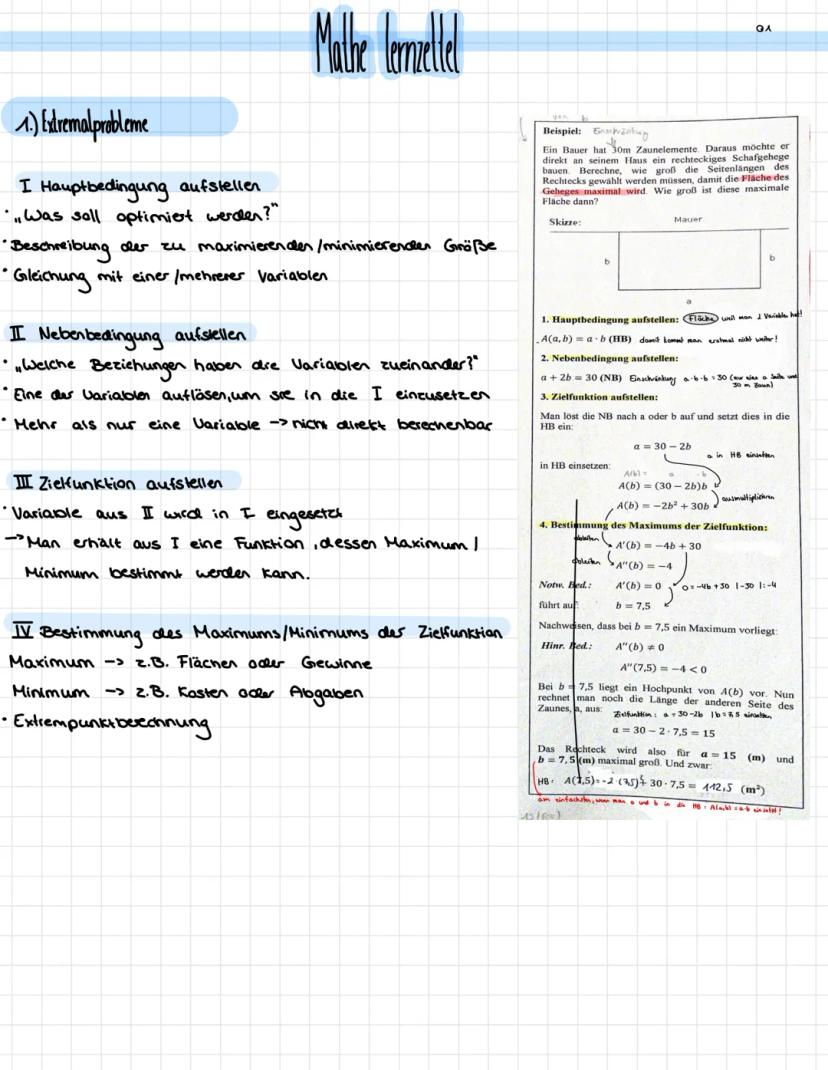 Mathe Lernzettel
Q1
1.) Extremalprobleme
I Hauptbedingung aufstellen
• „Was soll optimiert werden?"
• Beschreibung der zu maximierenden/minimierenden Größe
• Gleichung mit einer/mehrerer Variablen
II Nebenbedingung aufstellen
• „Welche Beziehungen haben die Variablen zueinander?"
• Eine der Variablen auflösen, um sie in die I einzusetzen
• Mehr als nur eine Variable -> nicht direkt berechenbar
III Zielfunktion aufstellen
• Variable aus II wird in I eingesetzt
-> Man erhält aus I eine Funktion, dessen Maximum /
Minimum bestimmt werden kann.
IV Bestimmung des Maximums/Minimums der Zielfunktion
Maximum -> z.B. Flächen oder Gewinne
Minimum -> z.B. Kosten oder Abgaben
• Extrempunktberechnung
Beispiel: Einschränkung
Ein Bauer hat 30m Zaunelemente. Daraus möchte er
direkt an seinem Haus ein rechteckiges Schafgehege
bauen. Berechne, wie groß die Seitenlängen des
Rechtecks gewählt werden müssen, damit die Fläche des
Geheges maximal wird. Wie groß ist diese maximale
Fläche dann?
Skizze:
Mauer
b
b
a
1. Hauptbedingung aufstellen: Fläche weil man 2 Variablen hat!
A(a,b) = a · b (HB) damit kommt man erstmal nicht weiter!
2. Nebenbedingung aufstellen:
a + 2b = 30 (NB) Einschränkung a·b·b = 30 (nur eine a Seite und
30 m Zaun)
3. Zielfunktion aufstellen:
Man löst die NB nach a oder b auf und setzt dies in die
HB ein:
a = 30 − 2b
a in HB einsetzen
in HB einsetzen:
A(b) = a · b
A(b) = (30 − 2b)b
ausmultiplizieren
A(b) = −2b² + 30b
4. Bestimmung des Maximums der Zielfunktion:
ableiten
A'(b) = −4b + 30
ableiten
A''(b) = −4
Notw. Bed.: A'(b) = 0 0 = -4b +30 |-30 |:-4
führt auf: b = 7,5
Nachweisen, dass bei b = 7,5 ein Maximum vorliegt:
Hinr. Bed.: A''(b) ≠ 0
A''(7,5) = −4 < 0
Bei b = 7,5 liegt ein Hochpunkt von A(b) vor. Nun
rechnet man noch die Länge der anderen Seite des
Zaunes, a, aus:
Zielfunktion: a = 30-2b | b = 7,5 einsetzen
a = 30 − 2 · 7,5 = 15
Das Rechteck wird also für a = 15 (m) und
b = 7,5 (m) maximal groß. Und zwar:
HB: A(7,5) = -2·(7,5)² + 30 · 7,5 = 112,5 (m²)
am einfachsten, wenn man a und b in die HB: A(a,b) = a·b einsetzt!